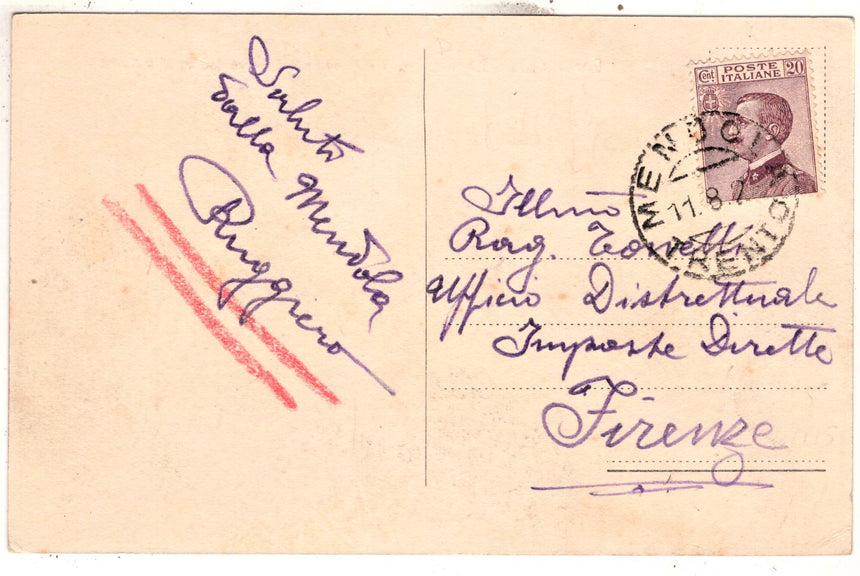 Saluto
dalla Mendola
Ruggiero
Cent. POSTE ITALIANE 20
MENDOLA
11.8.2
TRENTO
Illmo
Rag. Tonetti
Ufficio Distrettuale
Imposte Dirette
Firenze